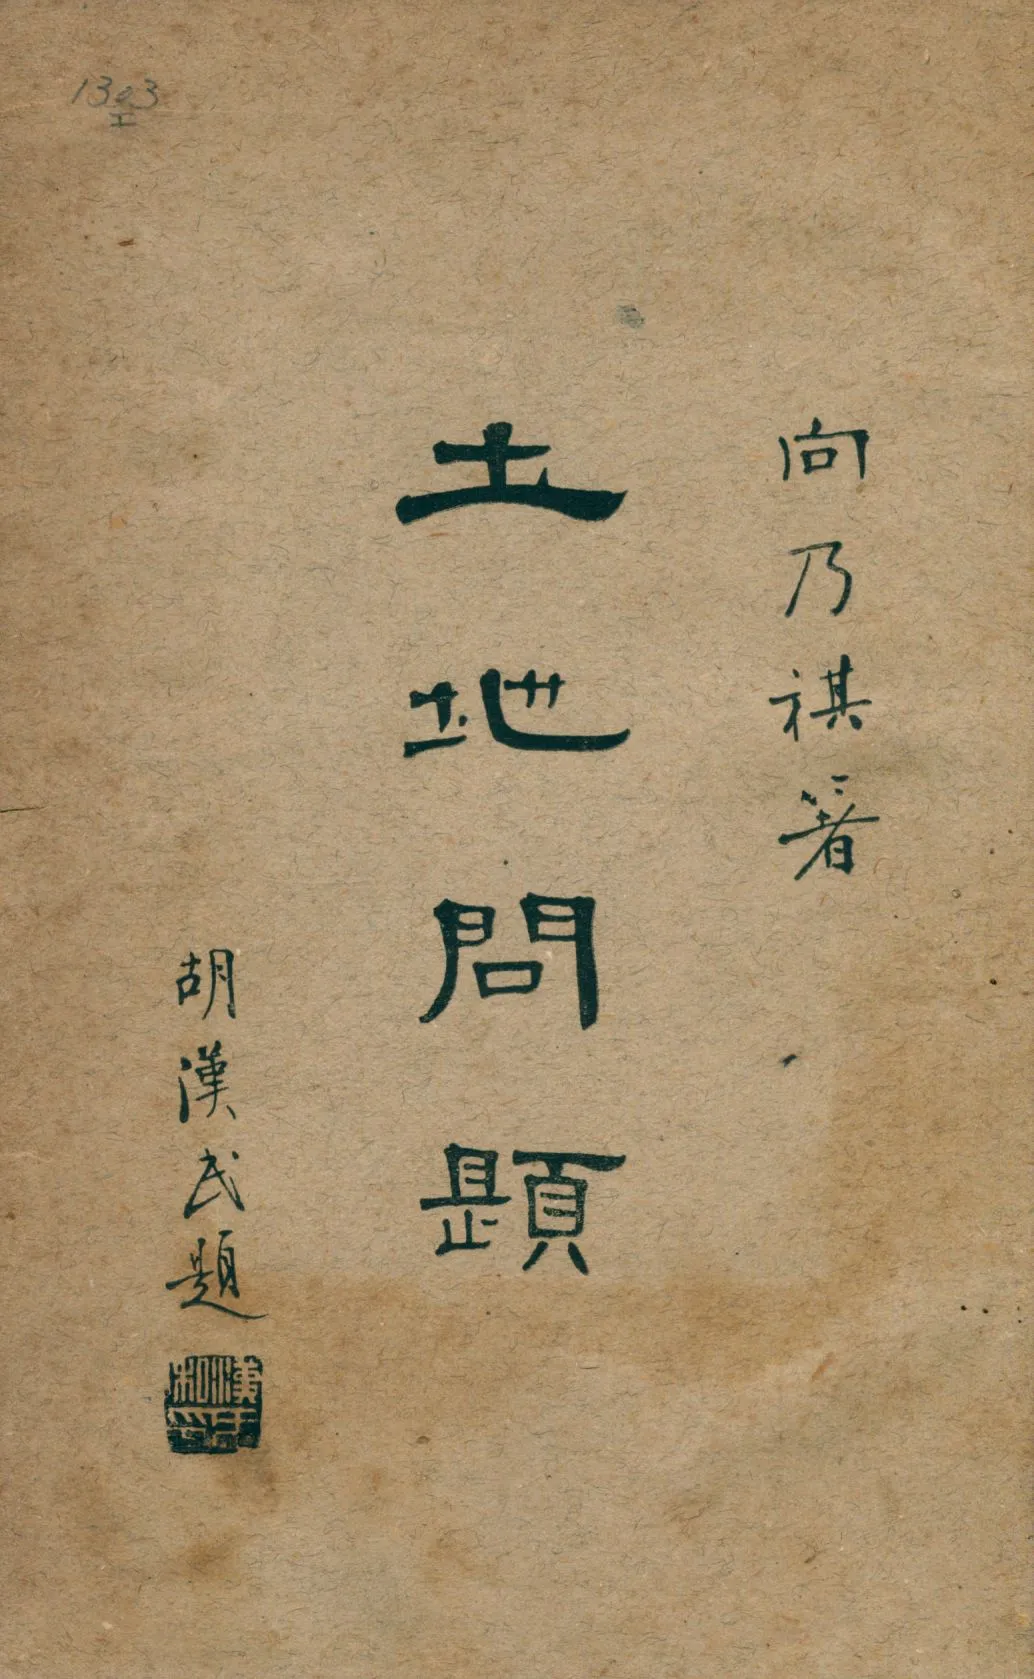 向乃祺著
土地問題
胡漢民題